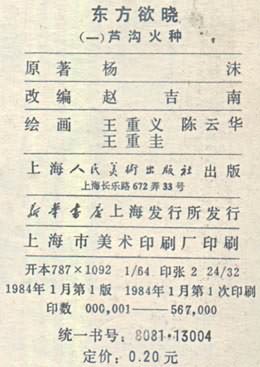 东方欲晓
(一)芦沟火种
原著 杨沫
改编 赵吉南
绘画 王重义 陈云华
王重圭
上海人民美术出版社出版
上海长乐路672弄33号
新华书店上海发行所发行
上海市美术印刷厂印刷
开本787×1092 1/64 印张 2 24/32
1984年1月第1版 1984年1月第1次印刷
印数 000,001——567,000
统一书号:8081·13004
定价:0.20元